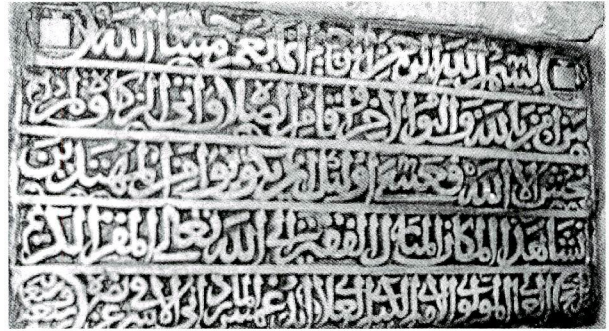 بسم الله الرحمن الرحيم انما يعمر مساجد الله
من امن بالله واليوم الاخر واقام الصلاة واتى الزكاة ولم
يخش الا الله فعسى اولئك ان يكونوا من المهتدين
انشا هذا المكان المبارك الفقير الى الله تعالى المقر الكريم
العالي المولوي